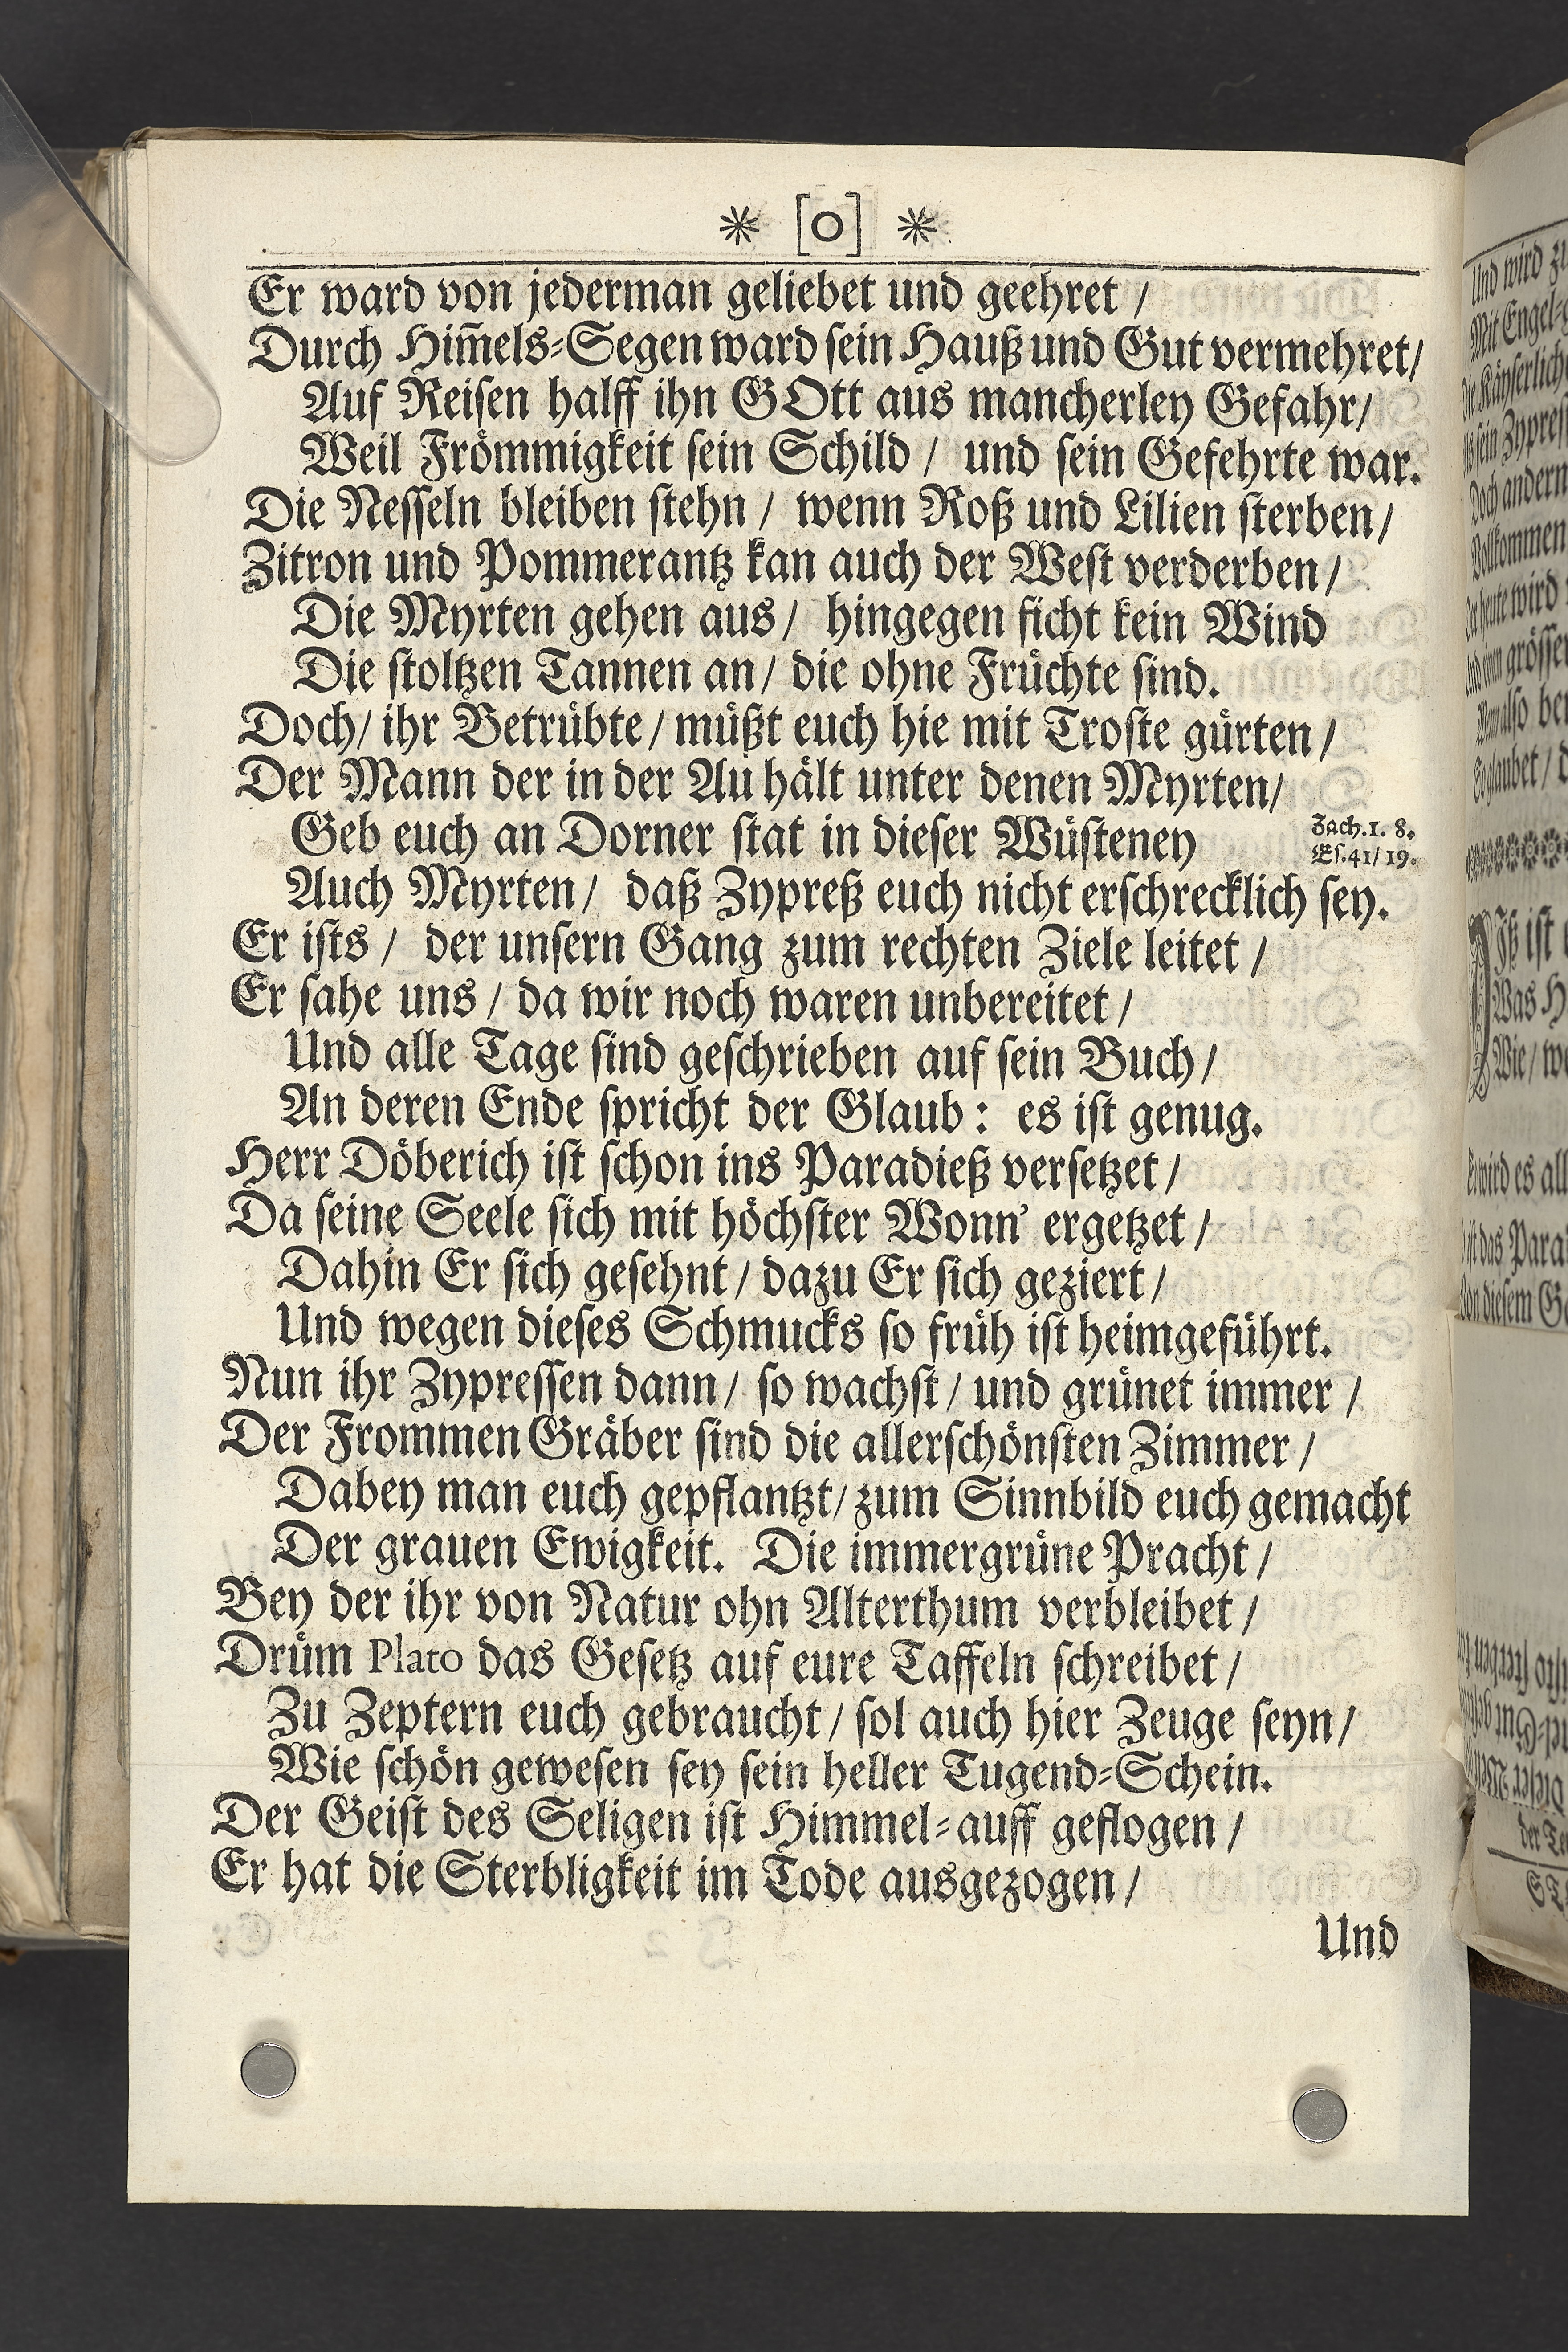 * [o] *
Er ward von jederman geliebet und geehret /
Durch Him̄els-Segen ward sein Hauß und Gut vermehret/
Auf Reisen halff ihn GOtt aus mancherley Gefahr/
Weil Frömmigkeit sein Schild / und sein Gefehrte war.
Die Nesseln bleiben stehn / wenn Roß und Lilien sterben/
Zitron und Pommerantz kan auch der West verderben/
Die Myrten gehen aus/ hingegen ficht kein Wind
Die stoltzen Tannen an/ die ohne Früchte sind.
Doch/ ihr Betrübte/ müßt euch hie mit Troste gürten/
Der Mann der in der Au hält unter denen Myrten/
Geb euch an Dorner stat in dieser Wüsteney
Zach.1. 8.
Es.41/19.
Auch Myrten/ daß Zypreß euch nicht erschrecklich sey.
Er ists / der unsern Gang zum rechten Ziele leitet /
Er sahe uns / da wir noch waren unbereitet /
Und alle Tage sind geschrieben auf sein Buch/
An deren Ende spricht der Glaub: es ist genug.
Herr Döberich ist schon ins Paradieß versetzet /
Da seine Seele sich mit höchster Wonn' ergetzet /
Dahin Er sich gesehnt / dazu Er sich geziert /
Und wegen dieses Schmucks so früh ist heimgeführt.
Nun ihr Zypressen dann/ so wachst / und grünet immer /
Der Frommen Gräber sind die allerschönsten Zimmer /
Dabey man euch gepflantzt/ zum Sinnbild euch gemacht
Der grauen Ewigkeit. Die immergrüne Pracht /
Bey der ihr von Natur ohn Alterthum verbleibet /
Drüm Plato das Gesetz auf eure Taffeln schreibet /
Zu Zeptern euch gebraucht / sol auch hier Zeuge seyn/
Wie schön gewesen sey sein heller Tugend-Schein.
Der Geist des Seligen ist Himmel-auff geflogen /
Er hat die Sterbligkeit im Tode ausgezogen /
Und